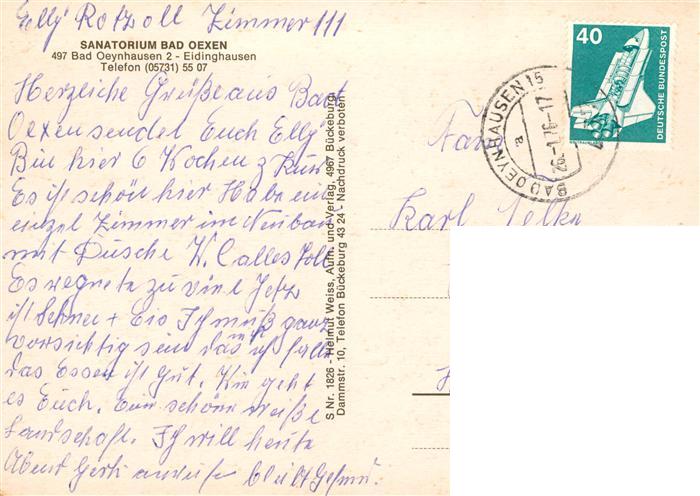 Elly Rotzoll Zimmer 111
SANATORIUM BAD OEXEN
497 Bad Oeynhausen 2 - Eidinghausen
Telefon (05731) 55 07
Herzliche Grüße aus Bad
Oexen sendet Euch Elly
Bin hier 6 Wochen z Kur
Es ist schön hier Habe ein
einzel Zimmer im Neubau
mit Dusche W. C alles toll
Es regnete zu viel Jetz
ist Schnee + Eis Ich muß ganz
vorsichtig sein das ich
das Essen ist gut. Wie geht
es Euch. Eine schöne weiße
Landschaft. Ich will heute
Abend Gerti anrufen bleibt Gesund.
S Nr. 1826 - Helmut Weiss, Aufn. und Verlag, 4967 Bückeburg
Dammstr. 10, Telefon Bückeburg 43 24 - Nachdruck verboten
40
DEUTSCHE BUNDESPOST
BAD OEYNHAUSEN 1
26-1.76-17
Fam
Karl